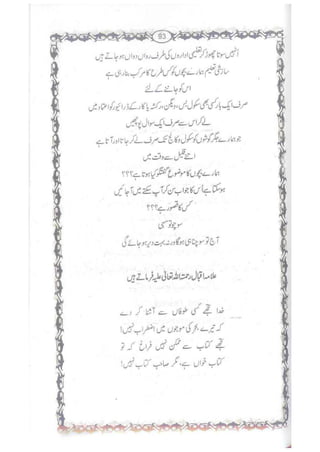 93
اُنہیں سوتا چھوڑ کر تعلیمی اداروں کی طرف رواں دواں ہو جاتے ہیں
سازشی تعلیم ہمارے بچوں کو کس طرح کا مرکب بنا رہی ہے
اس کو جاننے کے لئے
صرف ایک بار کسی بھی سکول بس، ویگن، رکشہ یا کار کے ڈرائیور کو اعتماد میں
لے کر اس سے صرف ایک سوال پوچھیں
جو ہمارے جگر گوشوں کو سکول و کالج تک صرف لے کر جاتا اور آتا ہے
اتنے قلیل سے وقت میں
ہمارے بچوں کا موضوع گفتگو کیا ہوتا ہے؟؟؟
ہو سکتا ہے اُس کا جواب سن کر آپ سکتے میں آ جائیں
کس کا قصور ہے؟؟؟
سوچو تو سہی
آج تو سوچنا ہی ہو گا ورنہ بہت دیر ہو جائے گی
علامہ اقبال رحمۃ اللہ تعالیٰ علیہ فرماتے ہیں
خدا تجھے کسی طوفاں سے آشنا کر دے
کہ تیرے بحر کی موجوں میں اضطراب نہیں!
تجھے کتاب سے ممکن نہیں فراغ کہ تو
کتاب خواں ہے، مگر صاحب کتاب نہیں!